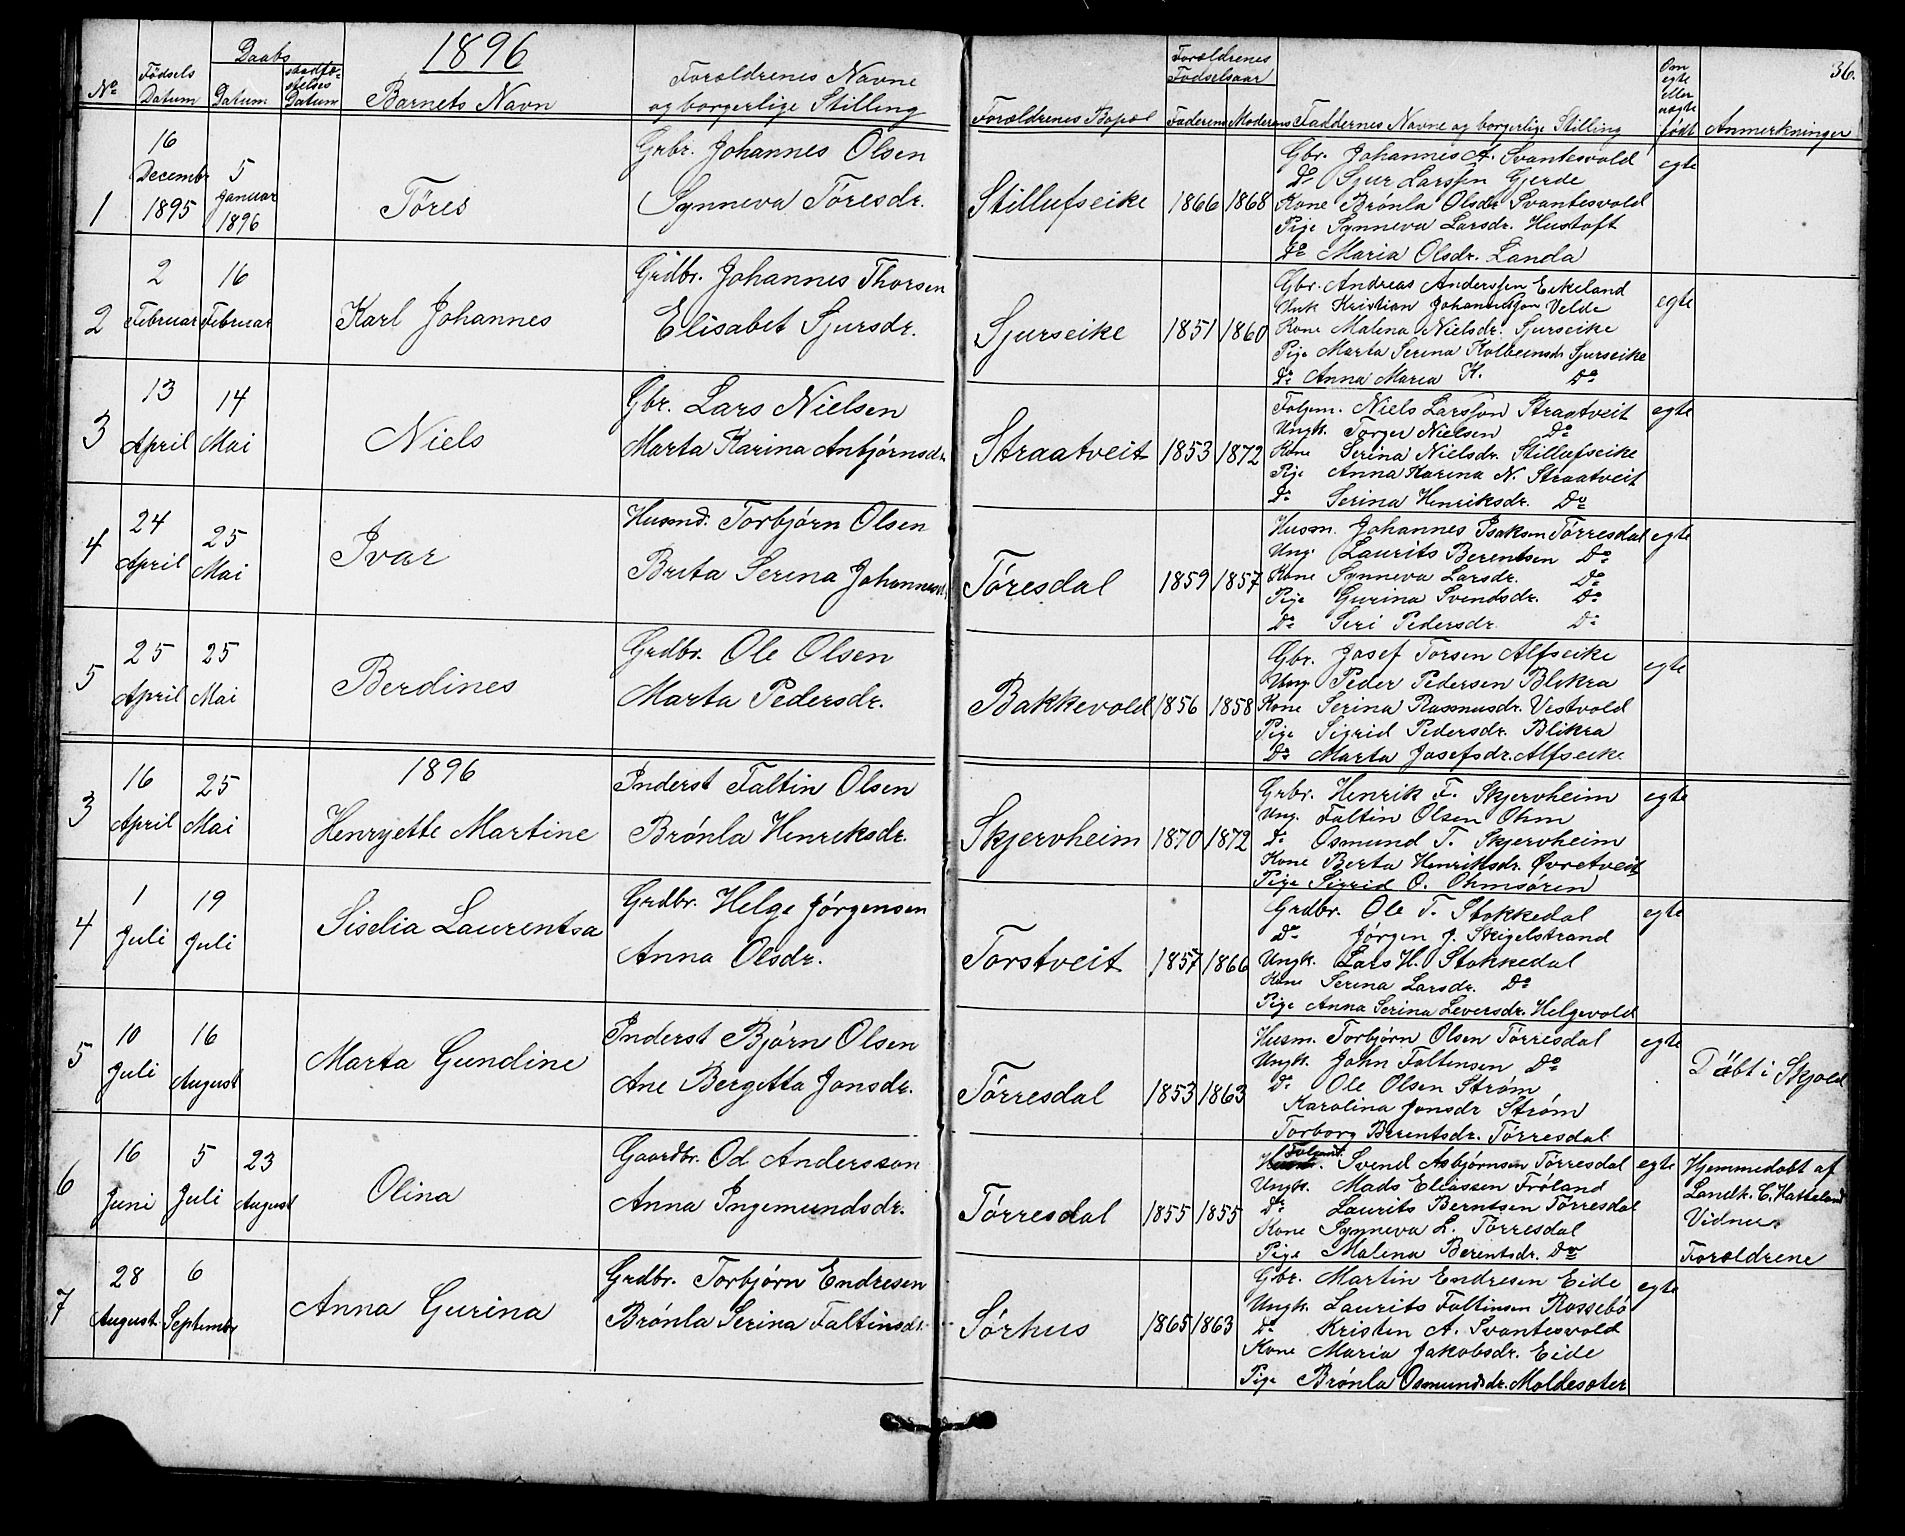 1896
36.
No
Fødsels Datum
Daabs Datum.
stadfæstelses Datum
Barnets Navn
Forældrenes Navne
og borgerlige Stilling
Forældrenes Bopæl
Forældrenes Fødselsaar
Faderens Moderens
Faddernes Navne og borgerlige Stilling
Om egte eller uægte født
Anmerkninger
1
16 Decembr 1895
5 Januar 1896
Töres
Grbr. Johannes Olsen
Synneva Töresdr.
Stillufseike 1866 1868
Gbr. Johannes A. Svantesvold
Do Sjur Larssen Gjerde
Kone Brónla Olsdr Svantesvold
Pige Synneva Larsdr. Hustoft
Do Maria Olsdr. Landa
egte
2
2 Februar
16 Februar
Karl Johannes
Grdbr. Johannes Thorsen
Elisabet Sjursdr.
Sjurseike 1851 1860
Gbr. Andreas Anderssen Eikeland
Unk Kristian Johannessen Velde
Kone Malena Nielsdr. Sjurseike
Pige Marta Serina Kolbeensdr Sjurseike
Do Anna Maria K. Do
egte
3
13 April
14 Mai
Niels
Gbr. Lars Nielsen
Marta Karina Anbjørnsdr.
Straatveit 1853 1872
Folgem. Niels Larsson Straatveit
Ungk. Torger Nielsen Do
Kone Serina Nielsdr. Stillufseike
Pige Anna Karina N. Straatveit
Do Serina Henriksdr. Do
egte
4
24 April
25 Mai
Ivar
Husmd. Torbjórn Olsen
Brita Serina Johannesdr.
Tóresdal 1859 1857
Husm. Johannes Isaksen Tórresdal
Ung. Laurits Berentsen Do
Kone Synneva Larsdr. Do
Pige Gurina Svendsdr. Do
Do Seri Pedersdr. Do
egte
5
25 April
25 Mai
Berdines
Grdbr. Ole Olsen
Marta Pedersdr.
Bakkevold 1856 1858
Gbr. Josef Torsen Alfseike
Ung. Peder Pedersen Blikra
Kone Serina Rasmusdr. Vestvold
Pige Sigrid Pedersdr. Blikra
Do Marta Josefsdr. Alfseike
egte
1896
3
16 April
25 Mai
Henryette Martine
Inderst Faltin Olsen
Brónla Henriksdr.
Skjervheim 1870 1872
Grbr. Henrik F. Skjervheim
Ung. Faltin Olsen Ohm
Do Osmund T. Skjervheim
Kone Berta Henriksdr. Øvretveit
Pige Sigrid O. Ohmsóren
egte
4
1 Juli
19 Juli
Siselia Laurentsa
Grdbr. Helge Jórgensen
Anna Olsdr.
Torstveit 1857 1866
Grdbr. Ole T. Stokkedal
Do Jórgen J. Skigelstrand
Ungk. Lars H. Stokkedal
Kone Serina Larsdr. Do
Pige Anna Serina Leversdr. Helgevold
egte
5
10 Juli
16 August
Marta Gundine
Inderst Bjórn Olsen
Ane Bergitta Jonsdr.
Tórresdal 1853 1863
Husm. Torbjórn Olsen Tórresdal
Ungk. John Faltinsen Do
Do Ole Olsen Stróm
Karolina Jonsdr Stróm
Torborg Berentsdr. Tórresdal
egte
Döbt i Skjold
6
16 Juni
5 Juli
23 August
Olina
Gaardbr. Od Andersson
Anna Ingemundsdr.
Tórresdal 1855 1855
Folgmd. Svend Asbjórnsen Tórresdal
Ungk. Mads Eliassen Fróland
Do Laurits Berntsen Tórresdal
Kone Synneva L. Tórresdal
Pige Malena Berentsdr. Do
egte
Hjemmedøbt af
Landh. C. Hatteland
Vidner
Forældrene
7
28 August
6 Septembr
Anna Gurina
Grdbr. Torbjórn Endresen
Brónla Serina Faltinsdr.
Sórhus 1865 1863
Gbr. Martin Endresen Eide
Ungk. Laurits Faltinsen Rossebó
Do Kristen A. Svantesvold
Kone Maria Jakobsdr. Eide
Pige Brónla Osmundsdr. Moldesæter
egte